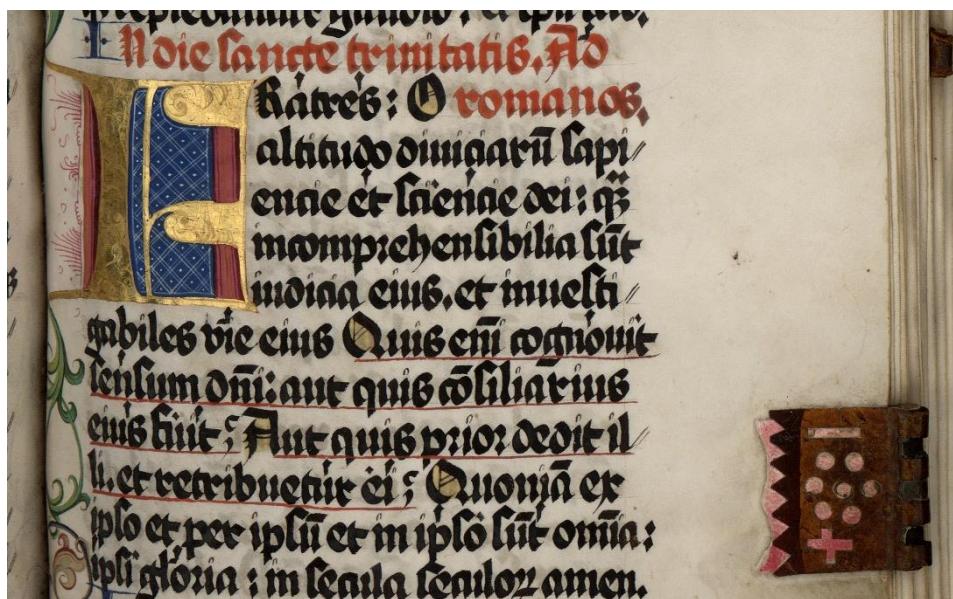 In die sancte trinitatis. Ad
Fratres: O romanos.
altitudo diuiciarū sapi//
encie et sciencie dei: q̄
incomprehensibilia sūt
iudicia eius. et inuesti//
gabiles vie eius Quis em̄ cognouit
sensum dn̄i: aut quis cōsiliarius
eius fuit? Aut quis prior dedit il//
li. et retribuetur ei? Quoniā ex
ipso et per ipsū et in ipso sūt omīa:
ipsi gloria: in secula seculoꝝ amen.